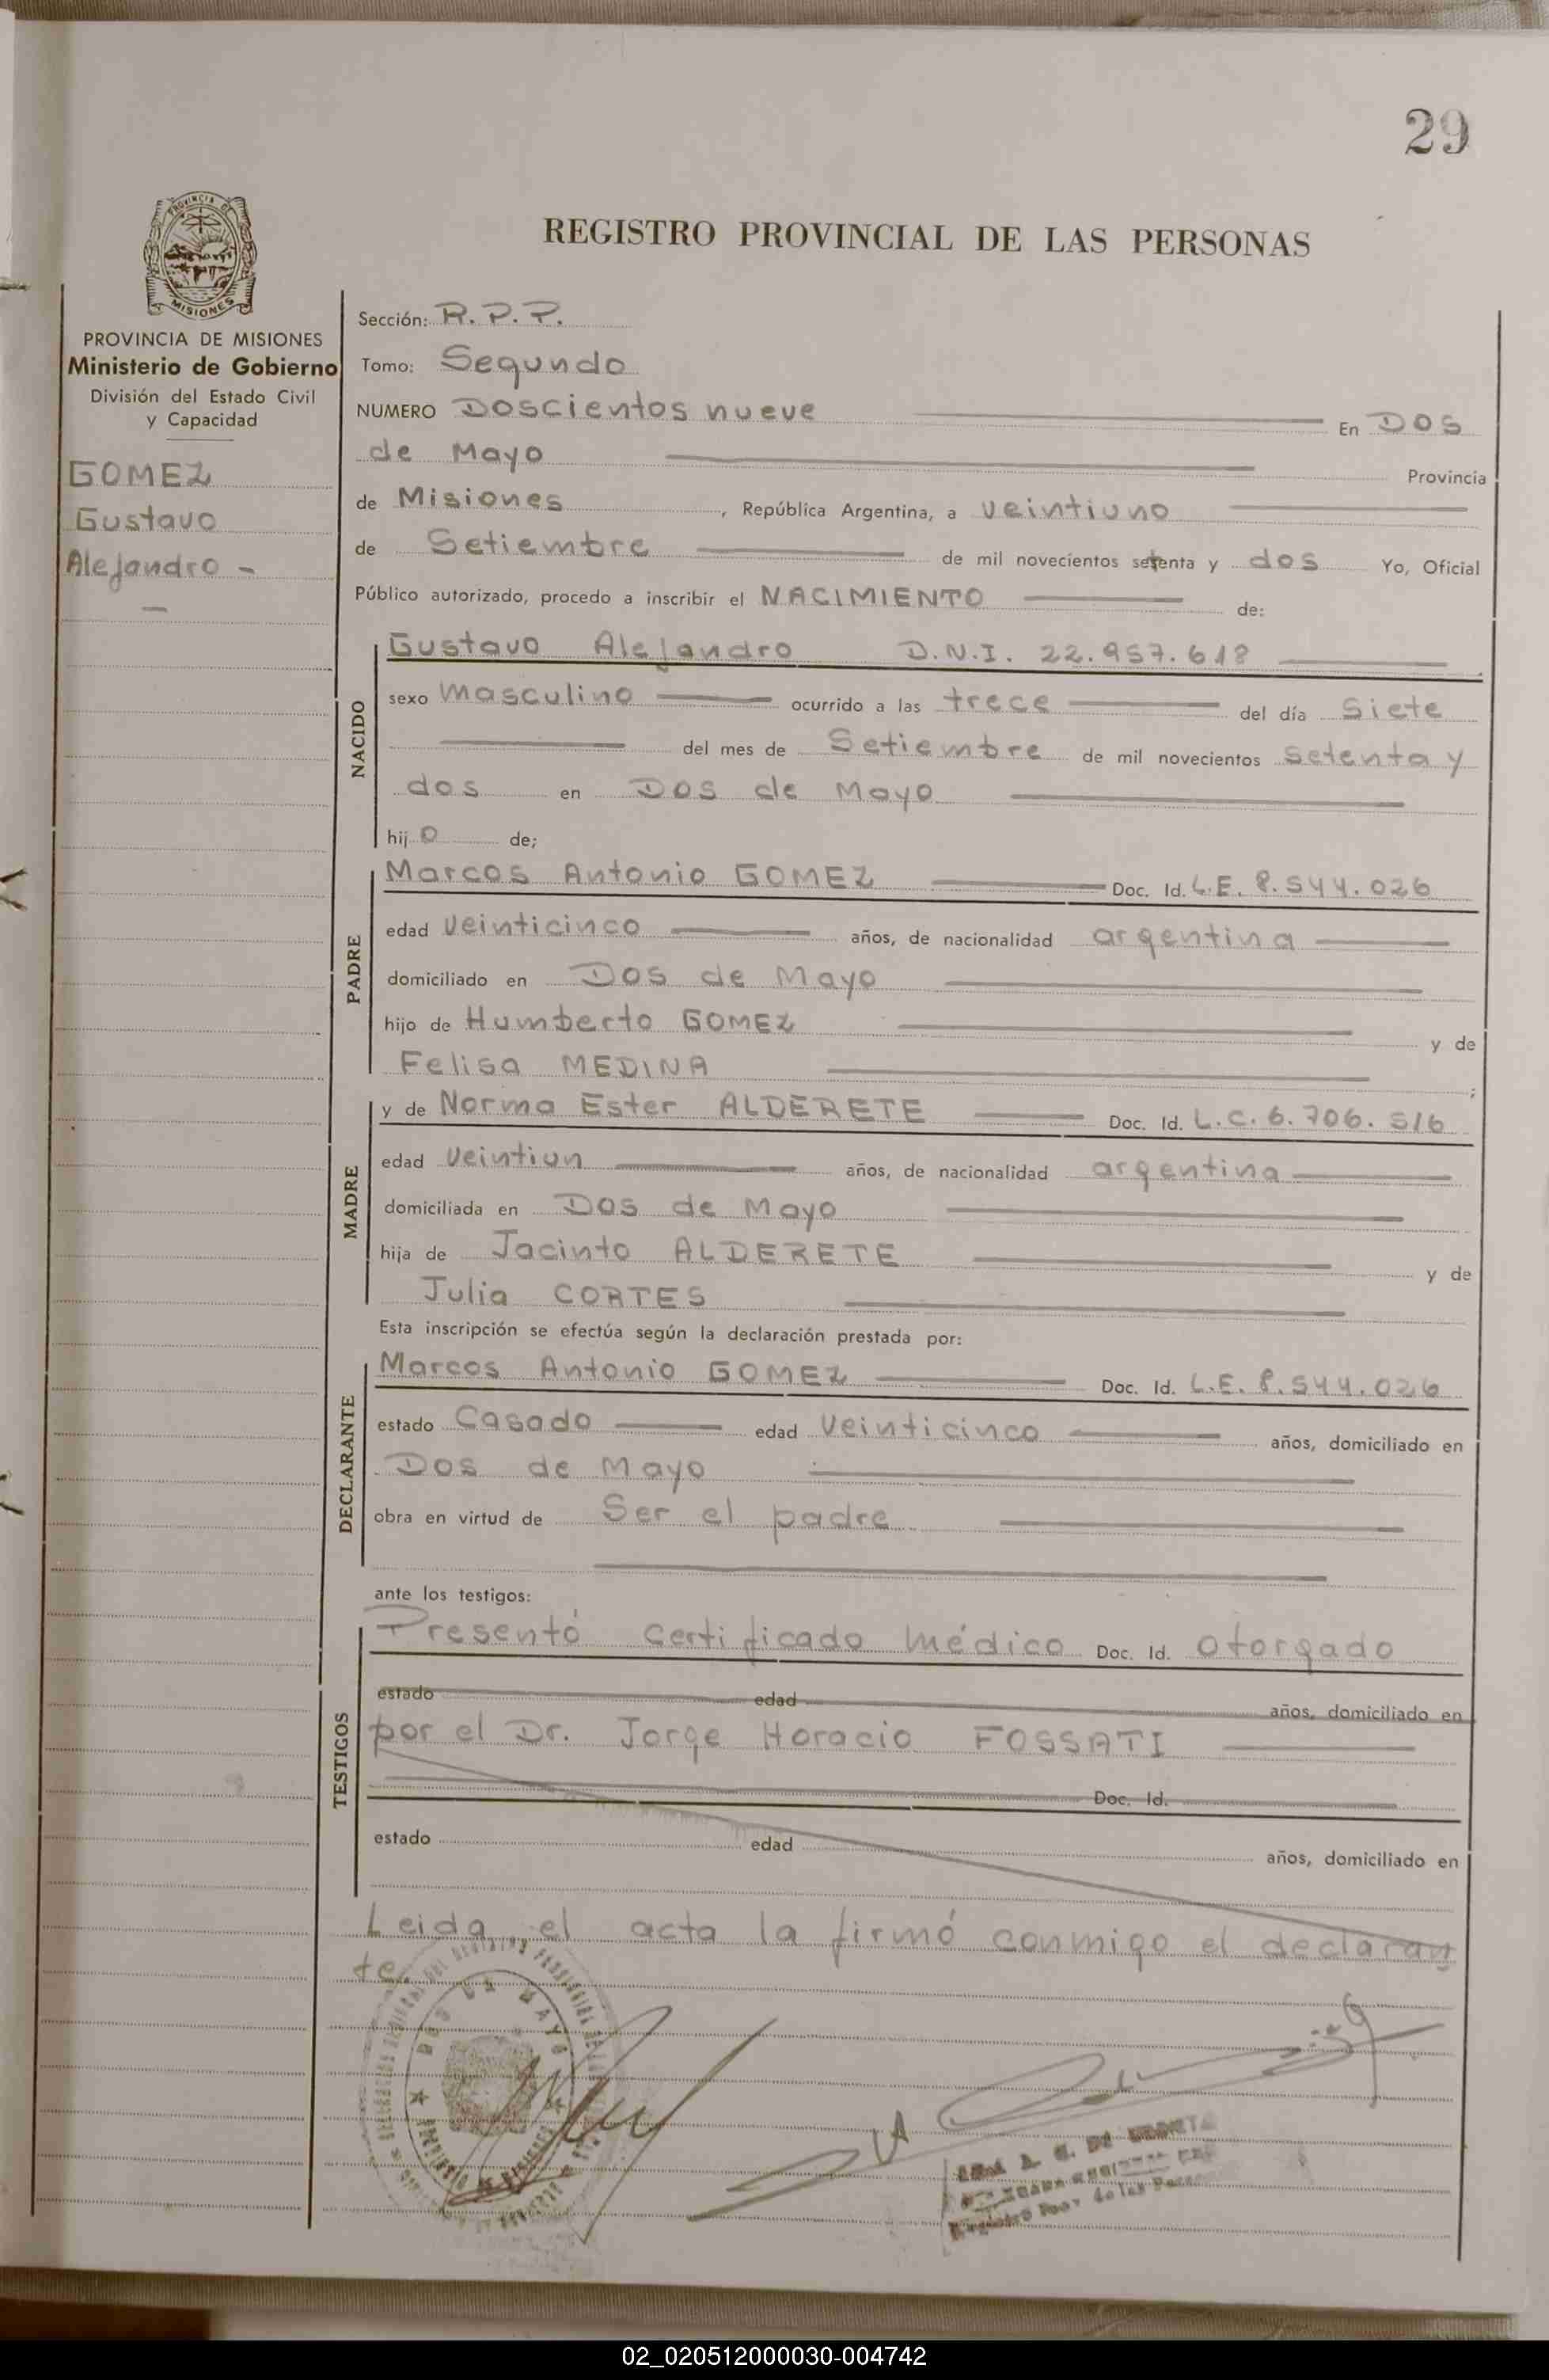 29
REGISTRO PROVINCIAL DE LAS PERSONAS
PROVINCIA DE
MISIONES
PROVINCIA DE MISIONES
Ministerio de Gobierno
División del Estado Civil
y Capacidad
GOMEZ
Gustavo
Alejandro -
Sección: R.P.P.
Tomo: Segundo
NUMERO Doscientos nueve En Dos
de Mayo Provincia
de Misiones, República Argentina, a veintiuno
de Setiembre de mil novecientos setenta y dos Yo, Oficial
Público autorizado, procedo a inscribir el NACIMIENTO de:
NACIDO
Gustavo Alejandro D.N.I. 22.957.618
sexo masculino ocurrido a las trece del día siete
del mes de Setiembre de mil novecientos setenta y
dos en Dos de Mayo
hijo de;
PADRE
Marcos Antonio GOMEZ Doc. Id. L.E. 8.544.026
edad veinticinco años, de nacionalidad argentina
domiciliado en Dos de Mayo
hijo de Humberto GOMEZ y de
Felisa MEDINA ;
MADRE
y de Norma Ester ALDERETE Doc. Id. L.C. 6.706.516
edad veintiun años, de nacionalidad argentina
domiciliada en Dos de Mayo
hija de Jacinto ALDERETE y de
Julia CORTES
Esta inscripción se efectúa según la declaración prestada por:
DECLARANTE
Marcos Antonio GOMEZ Doc. Id. L.E. 8.544.026
estado Casado edad veinticinco años, domiciliado en
Dos de Mayo
obra en virtud de Ser el padre
ante los testigos:
TESTIGOS
Presentó certificado médico Doc. Id. otorgado
estado edad años, domiciliado en
por el Dr. Jorge Horacio FOSSATI
Doc. Id.
estado edad años, domiciliado en
Leida el acta la firmó conmigo el declaran
te.
DOS DE MAYO
02_020512000030-004742